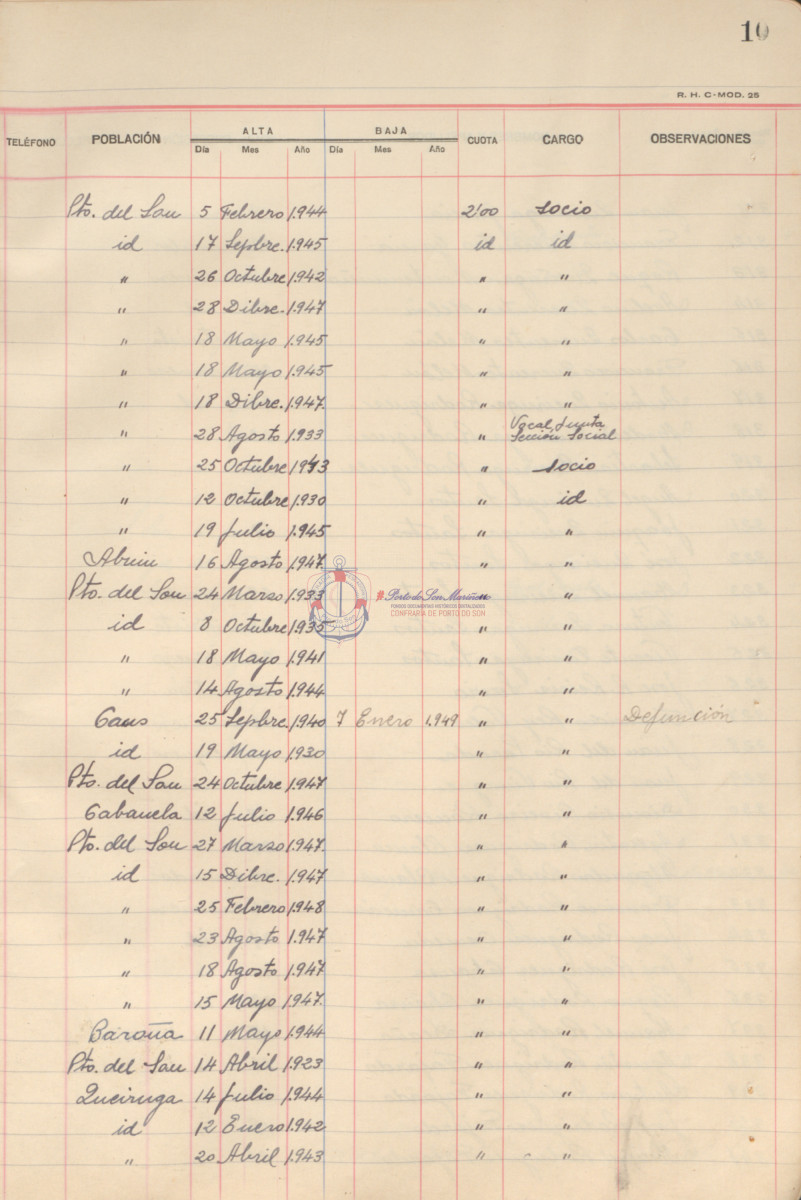 10
R. H. C-MOD. 25
TELÉFONO POBLACIÓN ALTA BAJA CUOTA CARGO OBSERVACIONES
Día Mes Año Día Mes Año
Pto. del Son 5 Febrero 1.944 2'00 socio
id 17 Sepbre. 1.945 id id
" 26 Octubre 1.942 " "
" 28 Dibre. 1.947 " "
" 18 Mayo 1.945 " "
" 18 Mayo 1.945 " "
" 18 Dibre. 1.947. " "
" 28 Agosto 1.933 " Vocal Junta
Sección Social
" 25 Octubre 1943 " socio
" 12 Octubre 1.930 " id
" 19 Julio 1.945 " "
16 Agosto 1.947. " "
Pto. del Son 24 Marzo 1.933 " "
id 8 Octubre 1.935 " "
" 18 Mayo 1.941 " "
" 14 Agosto 1.944 " "
Gans 25 Sepbre. 1.940 7 Enero 1.949 " " Defunción
id 19 Mayo 1.930 " "
Pto. del Son 24 Octubre 1.947 " "
Gabanela 12 Julio 1.946 " "
Pto. del Son 27 Marzo 1.947. " "
id 15 Dibre. 1.947 " "
" 25 Febrero 1.948 " "
" 23 Agosto 1.947 " "
" 18 Agosto 1.947 " "
" 15 Mayo 1.947. " "
Baroña 11 Mayo 1.944 " "
Pto. del Son 14 Abril 1.923 " "
Queiruga 14 Julio 1.944 " "
id 12 Enero 1.942 " "
" 20 Abril 1.943 " "
Porto do Son Mariñeiro
FONDOS DOCUMENTAIS HISTÓRICOS DIXITALIZADOS
CONFRARÍA DE PORTO DO SON